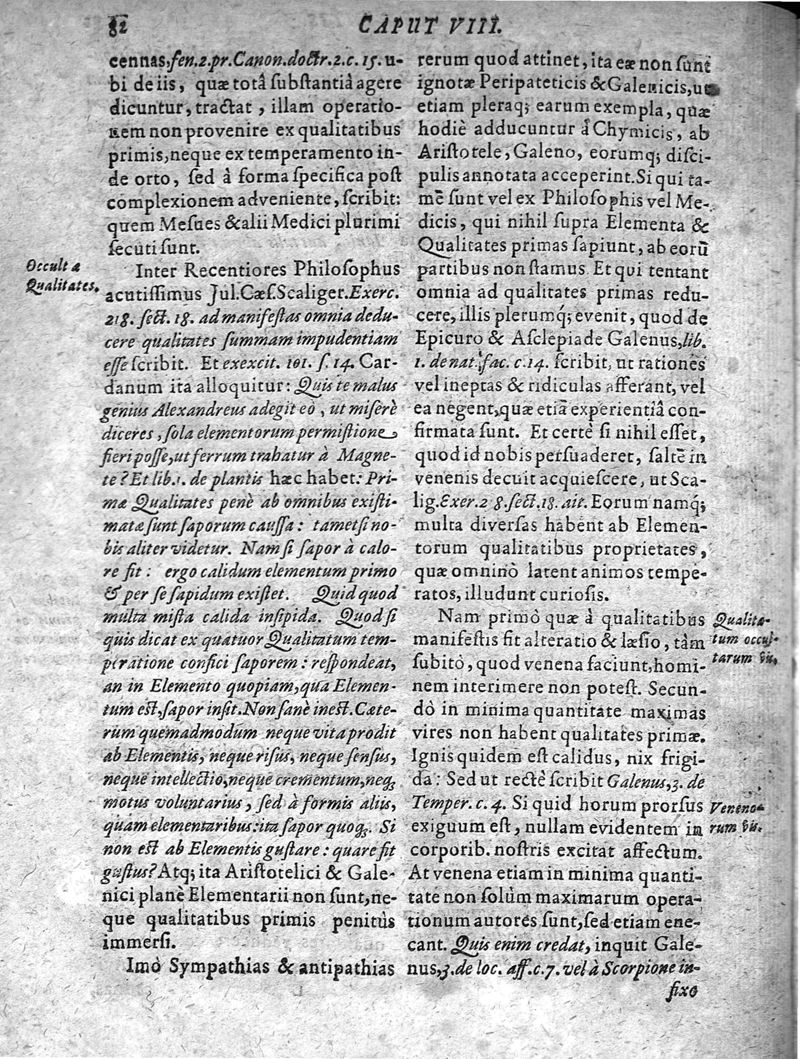 82
CAPUT VIII.
cennas, fen. 2. pr. Canon. doctr. 2. c. 15. u-
bi de iis, quæ totâ substantiâ agere
dicuntur, tractat, illam operatio-
nem non provenire ex qualitatibus
primis, neque ex temperamento in-
de orto, sed â forma specifica post
complexionem adveniente, scribit:
quem Mesues & alii Medici plurimi
secuti sunt.
Occultæ
Qualitates.
Inter Recentiores Philosophus
acutissimus Jul. Cæs. Scaliger. Exerc.
218. sect. 18. ad manifestas omnia dedu-
cere qualitates summam impudentiam
esse scribit. Et exexcit. 101. s. 14. Car-
danum ita alloquitur: Quis te malus
genius Alexandreus adegit eò, ut miserè
diceres, sola elementorum permistione
fieri posse, ut ferrum trahatur à Magne-
te? Et lib. 1. de plantis hæc habet: Pri-
mæ Qualitates penè ab omnibus existi-
matæ sunt saporum caussa: tametsi no-
bis aliter videtur. Nam si sapor à calo-
re fit: ergo calidum elementum primo
& per se sapidum existet. Quid quod
multa mista calida insipida. Quod si
quis dicat ex quatuor Qualitatum tem-
peratione confici saporem: respondeat,
an in Elemento quopiam, qua Elemen-
tum est, sapor insit. Non sanè inest. Cæte-
rum quemadmodum neque vita prodit
ab Elementis, neque risus, neque sensus,
neque intellectio, neque crementum, neq;
motus voluntarius, sed à formis aliis,
quàm elementaribus: ita sapor quoq;. Si
non est ab Elementis gustare: quare fit
gustus? Atq; ita Aristotelici & Gale-
nici planè Elementarii non sunt, ne-
que qualitatibus primis penitùs
immersi.
Imò Sympathias & antipathias
rerum quod attinet, ita eæ non sunt
ignotæ Peripateticis & Galenicis, ut
etiam pleraq; earum exempla, quæ
hodiè adducuntur â Chymicis, ab
Aristotele, Galeno, eorumq; disci-
pulis annotata acceperint. Si qui ta-
mẽ sunt vel ex Philosophis vel Me-
dicis, qui nihil supra Elementa &
Qualitates primas sapiunt, ab eorũ
partibus non stamus. Et qui tentant
omnia ad qualitates primas redu-
cere, illis plerumq; evenit, quod de
Epicuro & Asclepiade Galenus, lib.
1. de nat. fac. c. 14. scribit, ut rationes
vel ineptas & ridiculas afferant, vel
ea negent, quæ etiã experientiâ con-
firmata sunt. Et certè si nihil esset,
quod id nobis persuaderet, saltẽ in
venenis decuit acquiescere, ut Sca-
lig. Exer. 218. sect. 18. ait. Eorum namq;
multa diversas habent ab Elemen-
torum qualitatibus proprietates,
quæ omninò latent animos tempe-
ratos, illudunt curiosis.
Nam primò quæ à qualitatibus
manifestis fit alteratio & læsio, tàm
subitò, quod venena faciunt, homi-
nem interimere non potest. Secun-
dò in minima quantitate maximas
vires non habent qualitates primæ.
Ignis quidem est calidus, nix frigi-
da: Sed ut rectè scribit Galenus, 3. de
Temper. c. 4. Si quid horum prorsus
exiguum est, nullam evidentem in
corporib. nostris excitat affectum.
At venena etiam in minima quanti-
tate non solùm maximarum opera-
tionum autores sunt, sed etiam ene-
cant. Quis enim credat, inquit Gale-
nus, 3. de loc. aff. c. 7. vel à Scorpione in-
fixo
Qualita-
tum occul-
tarum vis.
Veneno-
rum vis.